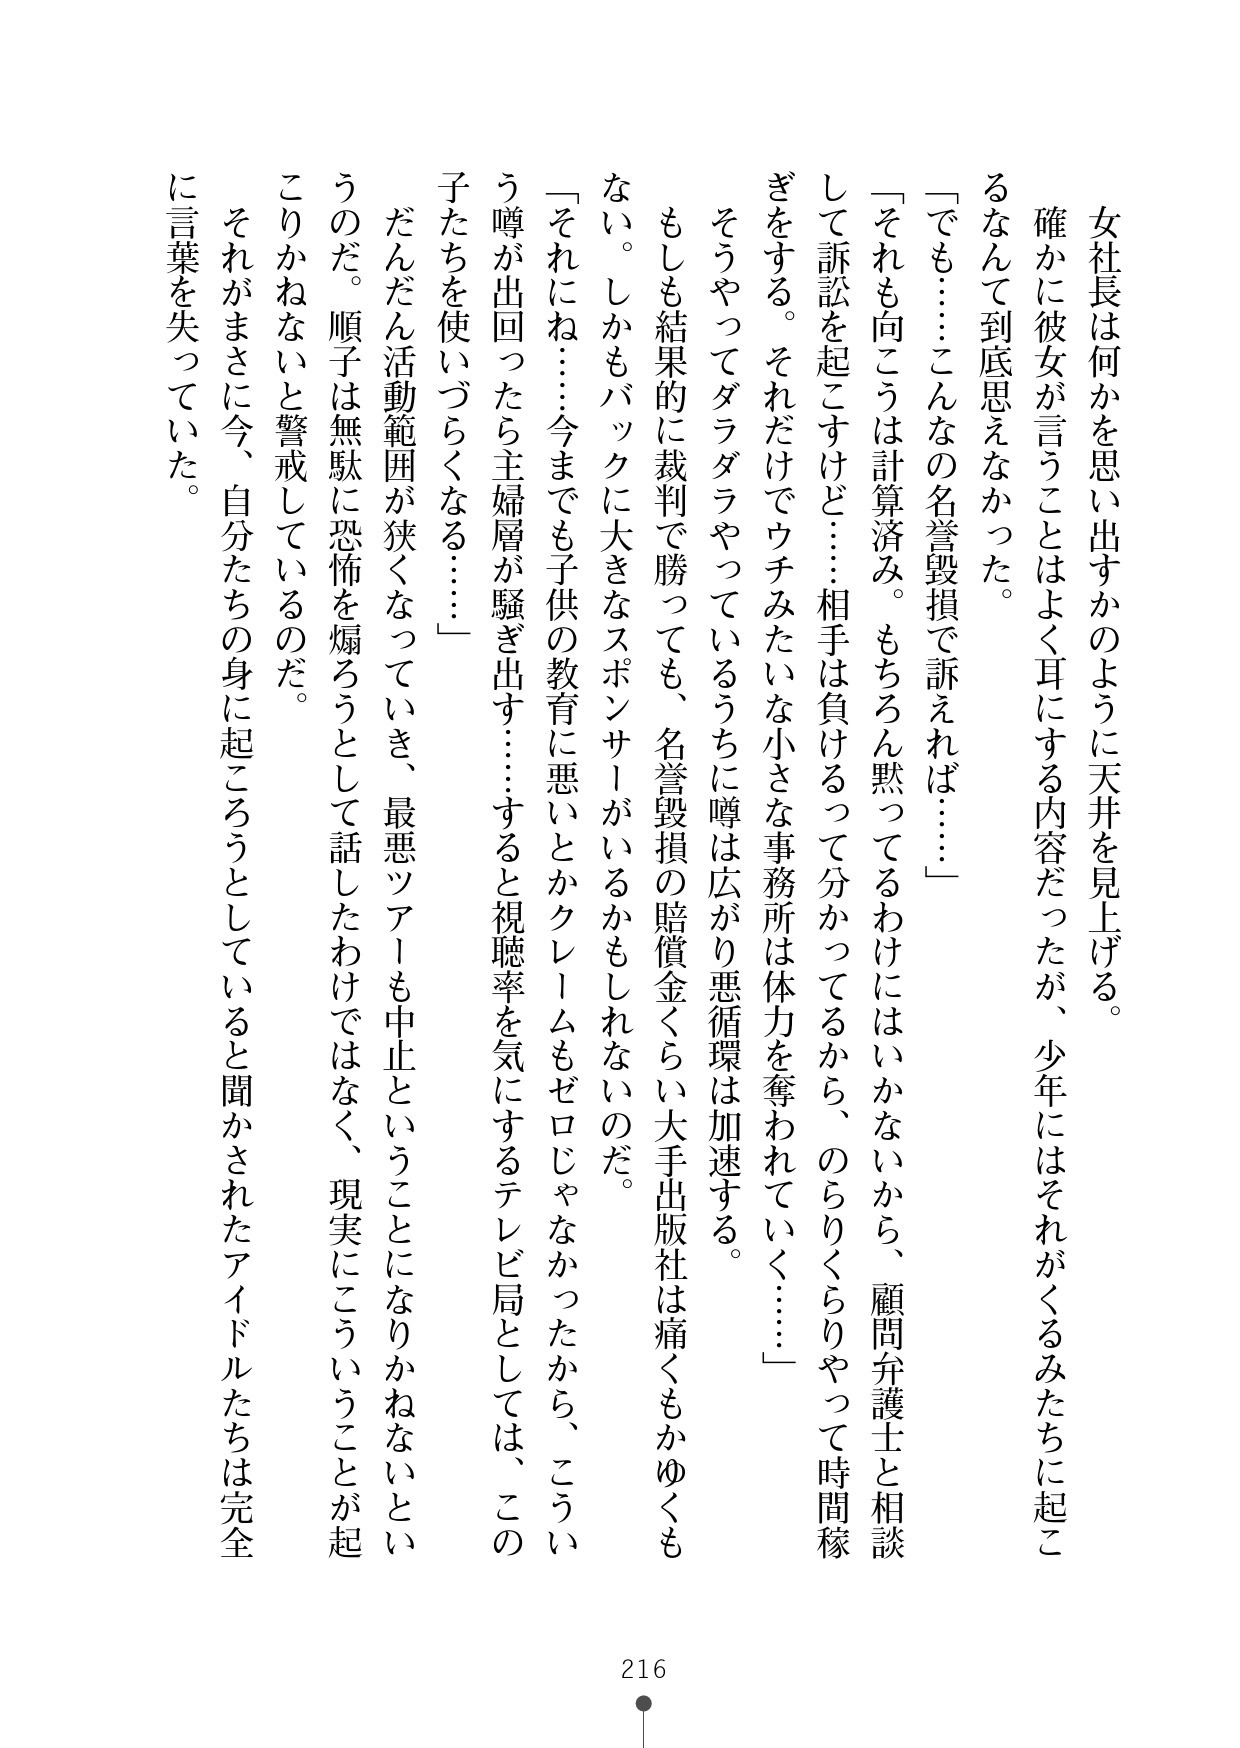 女社長は何かを思い出すかのように天井を見上げる。
確かに彼女が言うことはよく耳にする内容だったが、少年にはそれがくるみたちに起こ
るなんて到底思えなかった。
「でも……こんなの名誉毀損で訴えれば……」
「それも向こうは計算済み。もちろん黙ってるわけにはいかないから、顧問弁護士と相談
して訴訟を起こすけど……相手は負けるって分かってるから、のらりくらりやって時間稼
ぎをする。それだけでウチみたいな小さな事務所は体力を奪われていく……」
そうやってダラダラやっているうちに噂は広がり悪循環は加速する。
もしも結果的に裁判で勝っても、名誉毀損の賠償金くらい大手出版社は痛くもかゆくも
ない。しかもバックに大きなスポンサーがいるかもしれないのだ。
「それにね……今までも子供の教育に悪いとかクレームもゼロじゃなかったから、こうい
う噂が出回ったら主婦層が騒ぎ出す……すると視聴率を気にするテレビ局としては、この
子たちを使いづらくなる……」
だんだん活動範囲が狭くなっていき、最悪ツアーも中止ということになりかねないとい
うのだ。順子は無駄に恐怖を煽ろうとして話したわけではなく、現実にこういうことが起
こりかねないと警戒しているのだ。
それがまさに今、自分たちの身に起ころうとしていると聞かされたアイドルたちは完全
に言葉を失っていた。
216